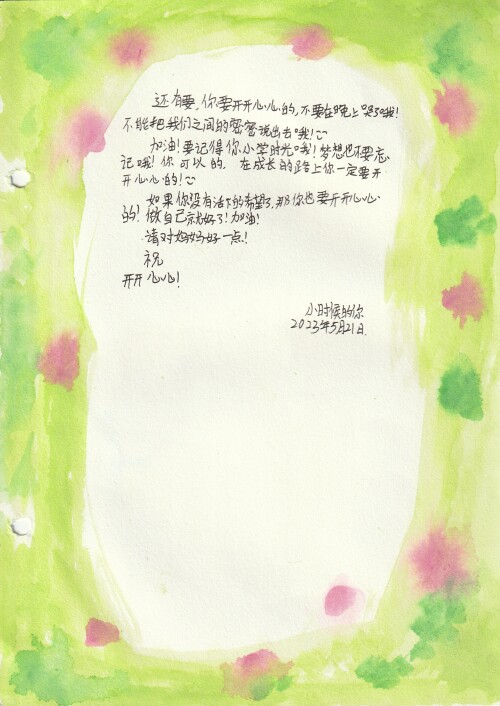 还有要,你要开开心心的,不要在晚上哭了哦!
不能把我们之间的秘密说出去哦!
加油!要记得你小学时光哦!梦想也不要忘
记哦!你可以的,在成长的路上你一定要开
开心心的!
如果你没有活下的希望了,那你也要开开心心
的!做自己就好了!加油!
请对妈妈好一点!
祝
开开心心!
小时候的你
2023年5月21日